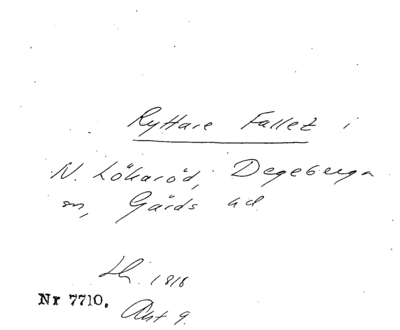 Ryttare Fallet i
N. Lökaröd, Degeberga
sn, Gärds hd
1818
Nr 7710.
Akt 9.